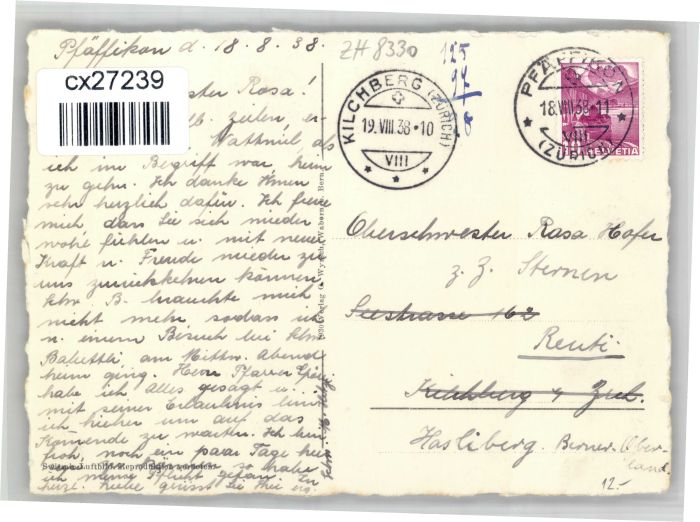 Pfäffikon d. 18.8.38.
ZH 8330
125
cx27239
ster Rosa!
zeilen, er-
Wattwil, als
ich im Begriff war heim
zu gehn. Ich danke Ihnen
sehr herzlich dafür. Ich freue
mich dass Sie sich wieder
wohl fühlen u. mit neuer
Kraft u. Freude wieder zu
uns zurückkehren können
Schw. B. brauchte mich
nicht mehr sodass ich
n. einem Besuch bei Schw.
Babettli am Mittw. Abend
heim ging. Herr Pfarrer
habe ich Alles gesagt u.
mit seiner Erlaubnis
ich hieher um auf das
zu warten. Ich bin
froh, noch ein paar Tage hier
so habe
ich meine Pflicht getan.
herzl. liebe grüsst Sie Ihre erg.
Luftbild
KILCHBERG (ZÜRICH)
19.VIII.38-10
VIII
PFÄFFIKON
18.VIII.38-11
VIII
(ZÜRICH)
HELVETIA
Oberschwester Rosa Hofer
z. Z. Sternen
Seestrasse 162
Reuti
Kilchberg b. Zch.
Hasliberg. Berner-Ober-
land
12.-